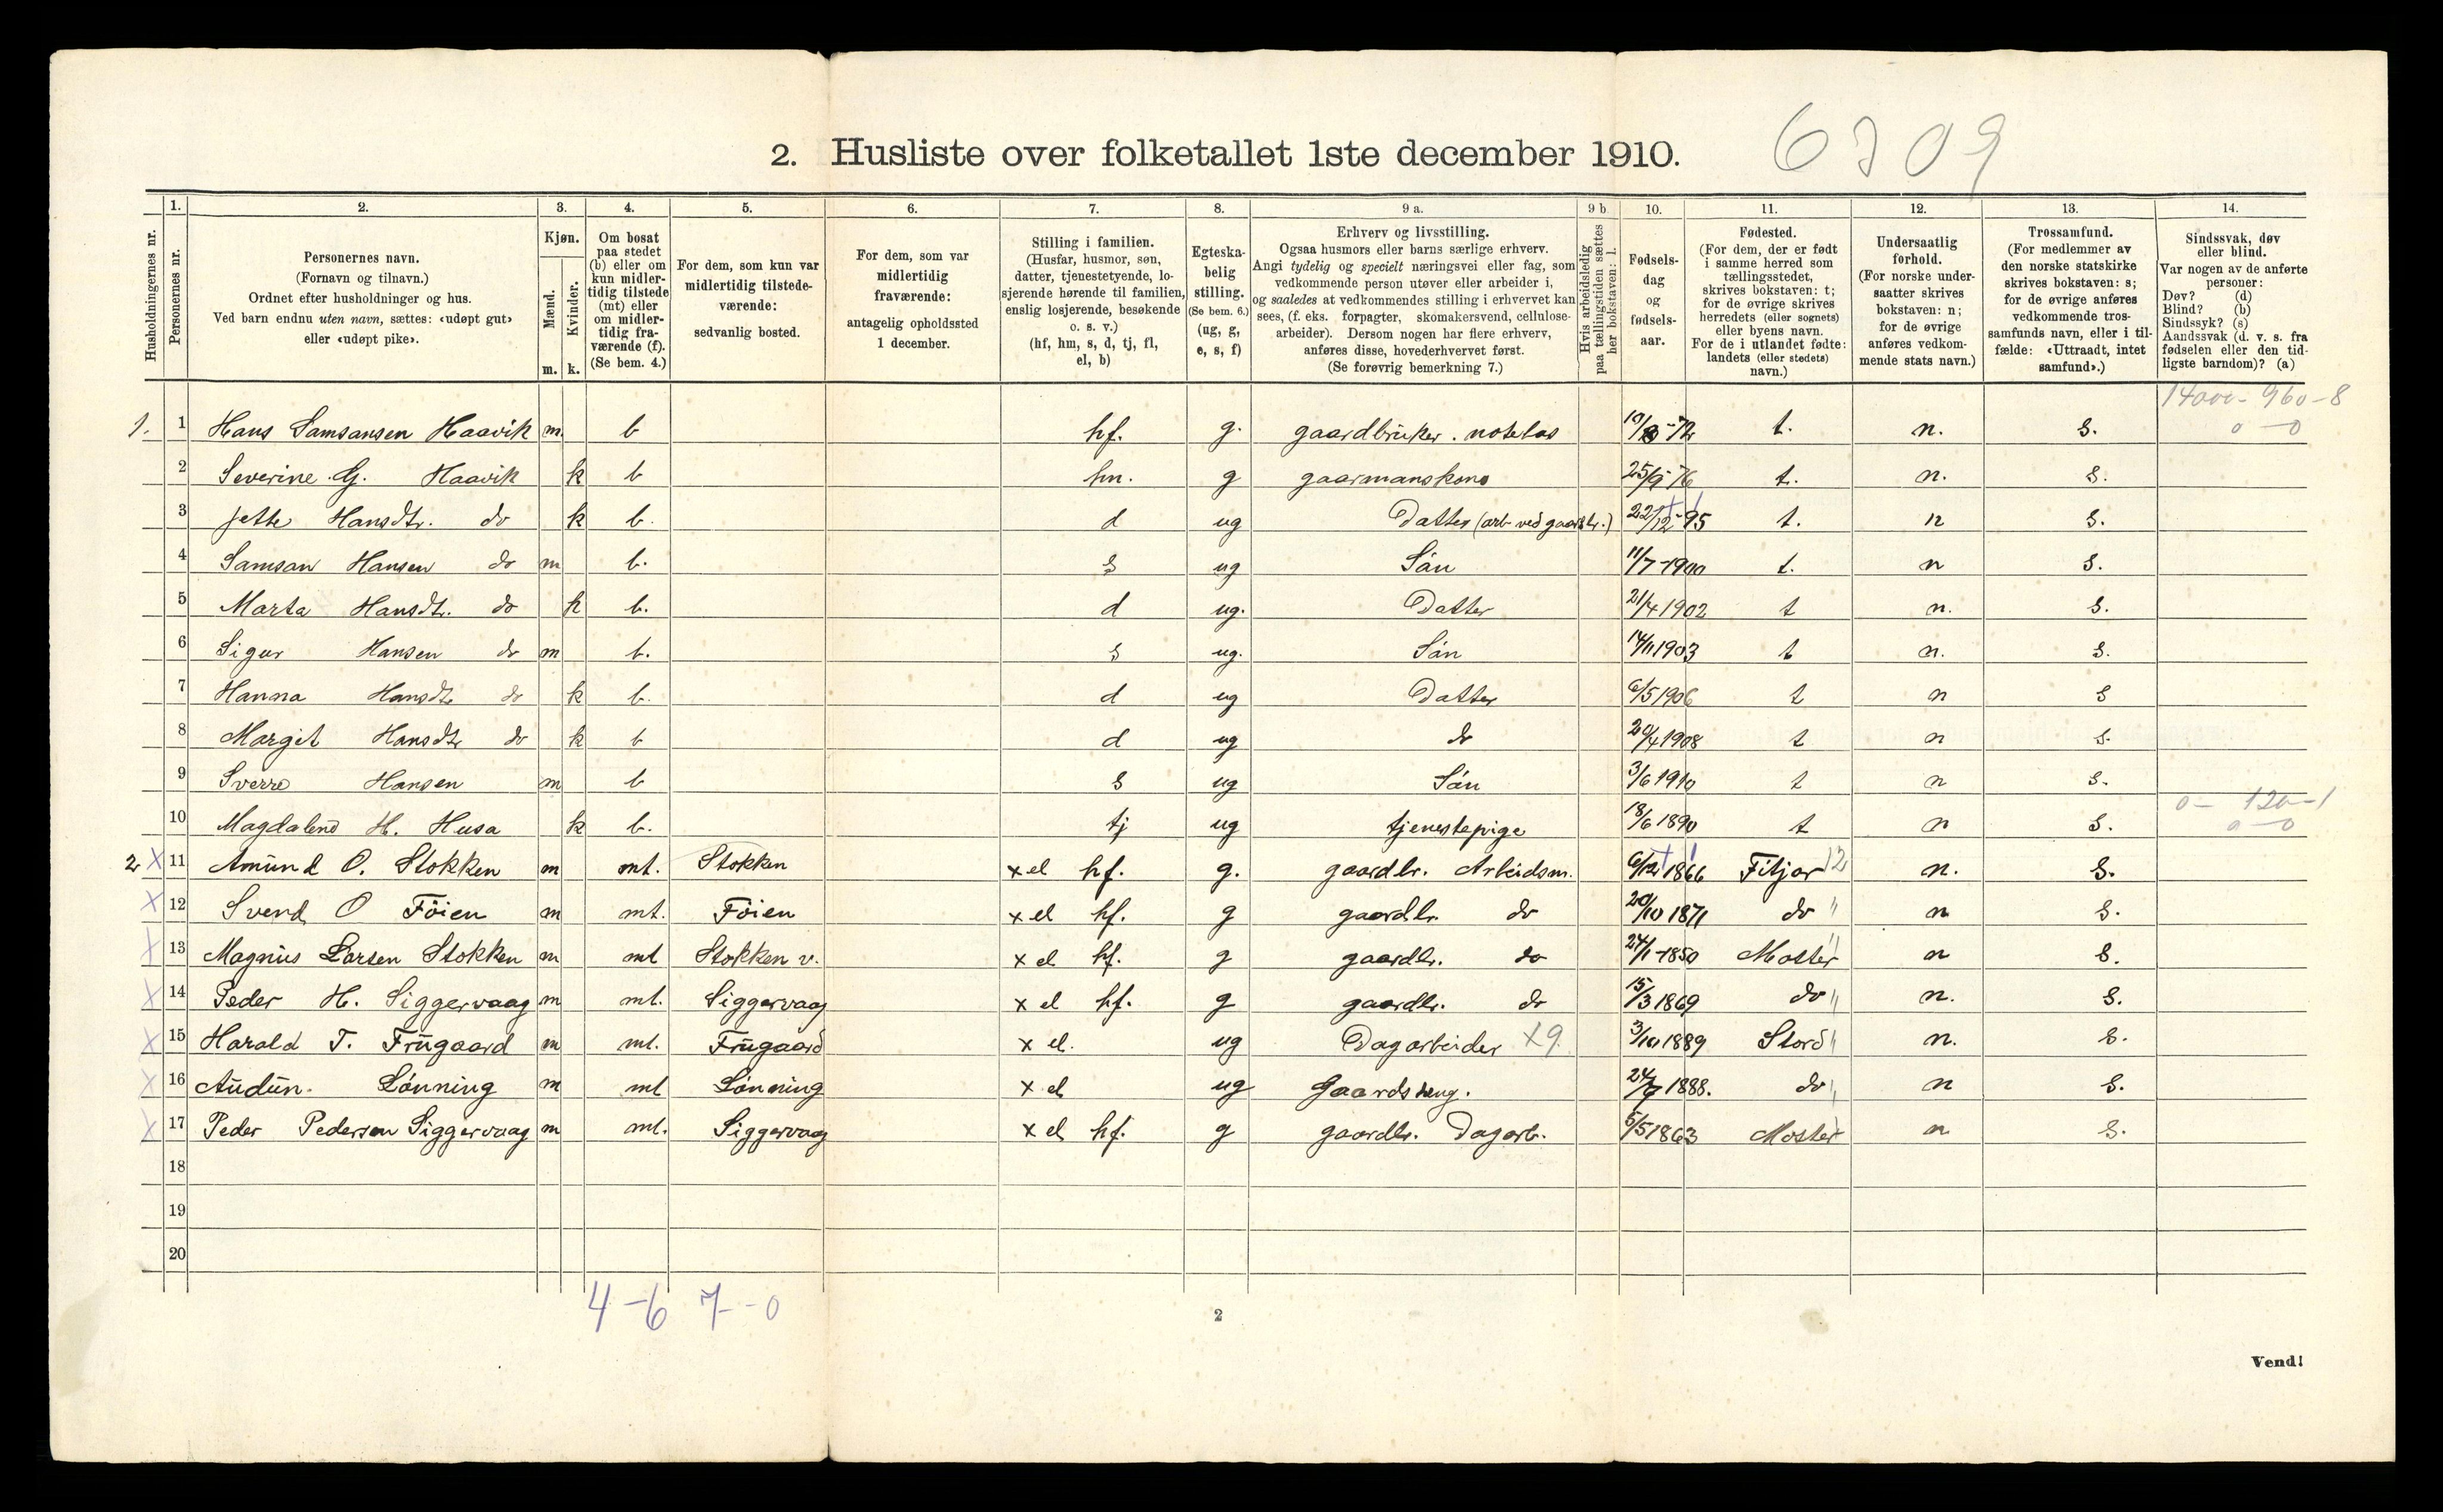 2. Husliste over folketallet 1ste december 1910.
6709
Husholdningernes nr.
1. Personernes nr.
2. Personernes navn.
(Fornavn og tilnavn.)
Ordnet efter husholdninger og hus.
Ved barn endnu uten navn, sættes: «udøpt gut»
eller «udøpt pike».
3. Kjøn.
Mænd. m.
Kvinder. k.
4. Om bosat
paa stedet
(b) eller om
kun midler-
tidig tilstede
(mt) eller
om midler-
tidig fra-
værende (f).
(Se bem. 4.)
5. For dem, som kun var
midlertidig tilstede-
værende:
sedvanlig bosted.
6. For dem, som var
midlertidig
fraværende:
antagelig opholdssted
1 december.
7. Stilling i familien.
(Husfar, husmor, søn,
datter, tjenestetyende, lo-
sjerende hørende til familien,
enslig losjerende, besøkende
o. s. v.)
(hf, hm, s, d, tj, fl,
el, b)
8. Egteska-
belig
stilling.
(Se bem. 6.)
(ug, g,
e, s, f)
9 a. Erhverv og livsstilling.
Ogsaa husmors eller barns særlige erhverv.
Angi tydelig og specielt næringsvei eller fag, som
vedkommende person utøver eller arbeider i,
og saaledes at vedkommendes stilling i erhvervet kan
sees, (f. eks. forpagter, skomakersvend, cellulose-
arbeider). Dersom nogen har flere erhverv,
anføres disse, hovederhvervet først.
(Se forøvrig bemerkning 7.)
9 b Hvis arbeidsledig
paa tællingstiden sættes
her bokstaven: l.
10. Fødsels-
dag
og
fødsels-
aar.
11. Fødested.
(For dem, der er født
i samme herred som
tællingsstedet,
skrives bokstaven: t;
for de øvrige skrives
herredets (eller sognets)
eller byens navn.
For de i utlandet fødte:
landets (eller stedets)
navn.)
12. Undersaatlig
forhold.
(For norske under-
saatter skrives
bokstaven: n;
for de øvrige
anføres vedkom-
mende stats navn.)
13. Trossamfund.
(For medlemmer av
den norske statskirke
skrives bokstaven: s;
for de øvrige anføres
vedkommende tros-
samfunds navn, eller i til-
fælde: «Uttraadt, intet
samfund».)
14. Sindssvak, døv
eller blind.
Var nogen av de anførte
personer:
Døv? (d)
Blind? (b)
Sindssyk? (s)
Aandssvak (d. v. s. fra
fødselen eller den tid-
ligste barndom)? (a)
1400 - 960 - 8
0 - 0
1. 1 Hans Samsansen Haavik m. b hf. g. gaardbruker . notebas 10/8-72 t. n. s.
2 Severine G. Haavik k b hm. g gaarmanskone 25/9-76 t. n. s.
3 Jette Hansdtr. do k b. d ug Datter (arb ved gaardsbr.) 22/12-95 t. n s.
4 Samsan Hansen do m b. s ug Sán 11/7-1900 t. n s.
5 Marta Hansdtr. do k b. d ug. Datter 21/4 1902 t n. s.
6 Sigur Hansen do m b. s ug. Sán 14/11 1903 t n. s.
7 Hanna Hansdtr do k b. d ug Datter 6/5 1906 t n s
8 Margit Hansdtr do k b d ug do 20/4 1908 t n s.
9 Sverre Hansen m b s ug Sán 3/6 1910 t n s.
0 - 120 - 1
0 - 0
10 Magdalene H. Husa k b. tj ug tjenestepige 18/6 1890 t n s.
2 x 11 Amund O. Stokken m mt. Stokken x el hf. g. gaardbr. Arbeidsm. 6/12 1866 Fitjar 12 n. s.
x 12 Svend O Föien m mt. Föien x el hf. g gaardbr. do 20/10 1871 do " n s.
x 13 Magnus Larsen Stokken m mt Stokken v. x el hf. g gaardbr. do 24/1-1850 Moster " n s.
x 14 Peder H. Siggervaag m mt. Siggervaag x el hf. g gaardbr. do 15/3 1869 do " n. s.
x 15 Harald T. Frugaard m mt. Frugaard x el. ug Dagarbeider x9. 3/10 1889 Stord " n. s.
x 16 Audun. Lónning m mt Lónning x el ug Gaardsdreng. 24/7 1888. do " n s.
x 17 Peder Pedersen Siggervaag m mt. Siggervaag x el hf. g gaardbr. Dagarb. 5/5 1863 Moster n s.
18
19
20
4-6 7-0
2
Vend!